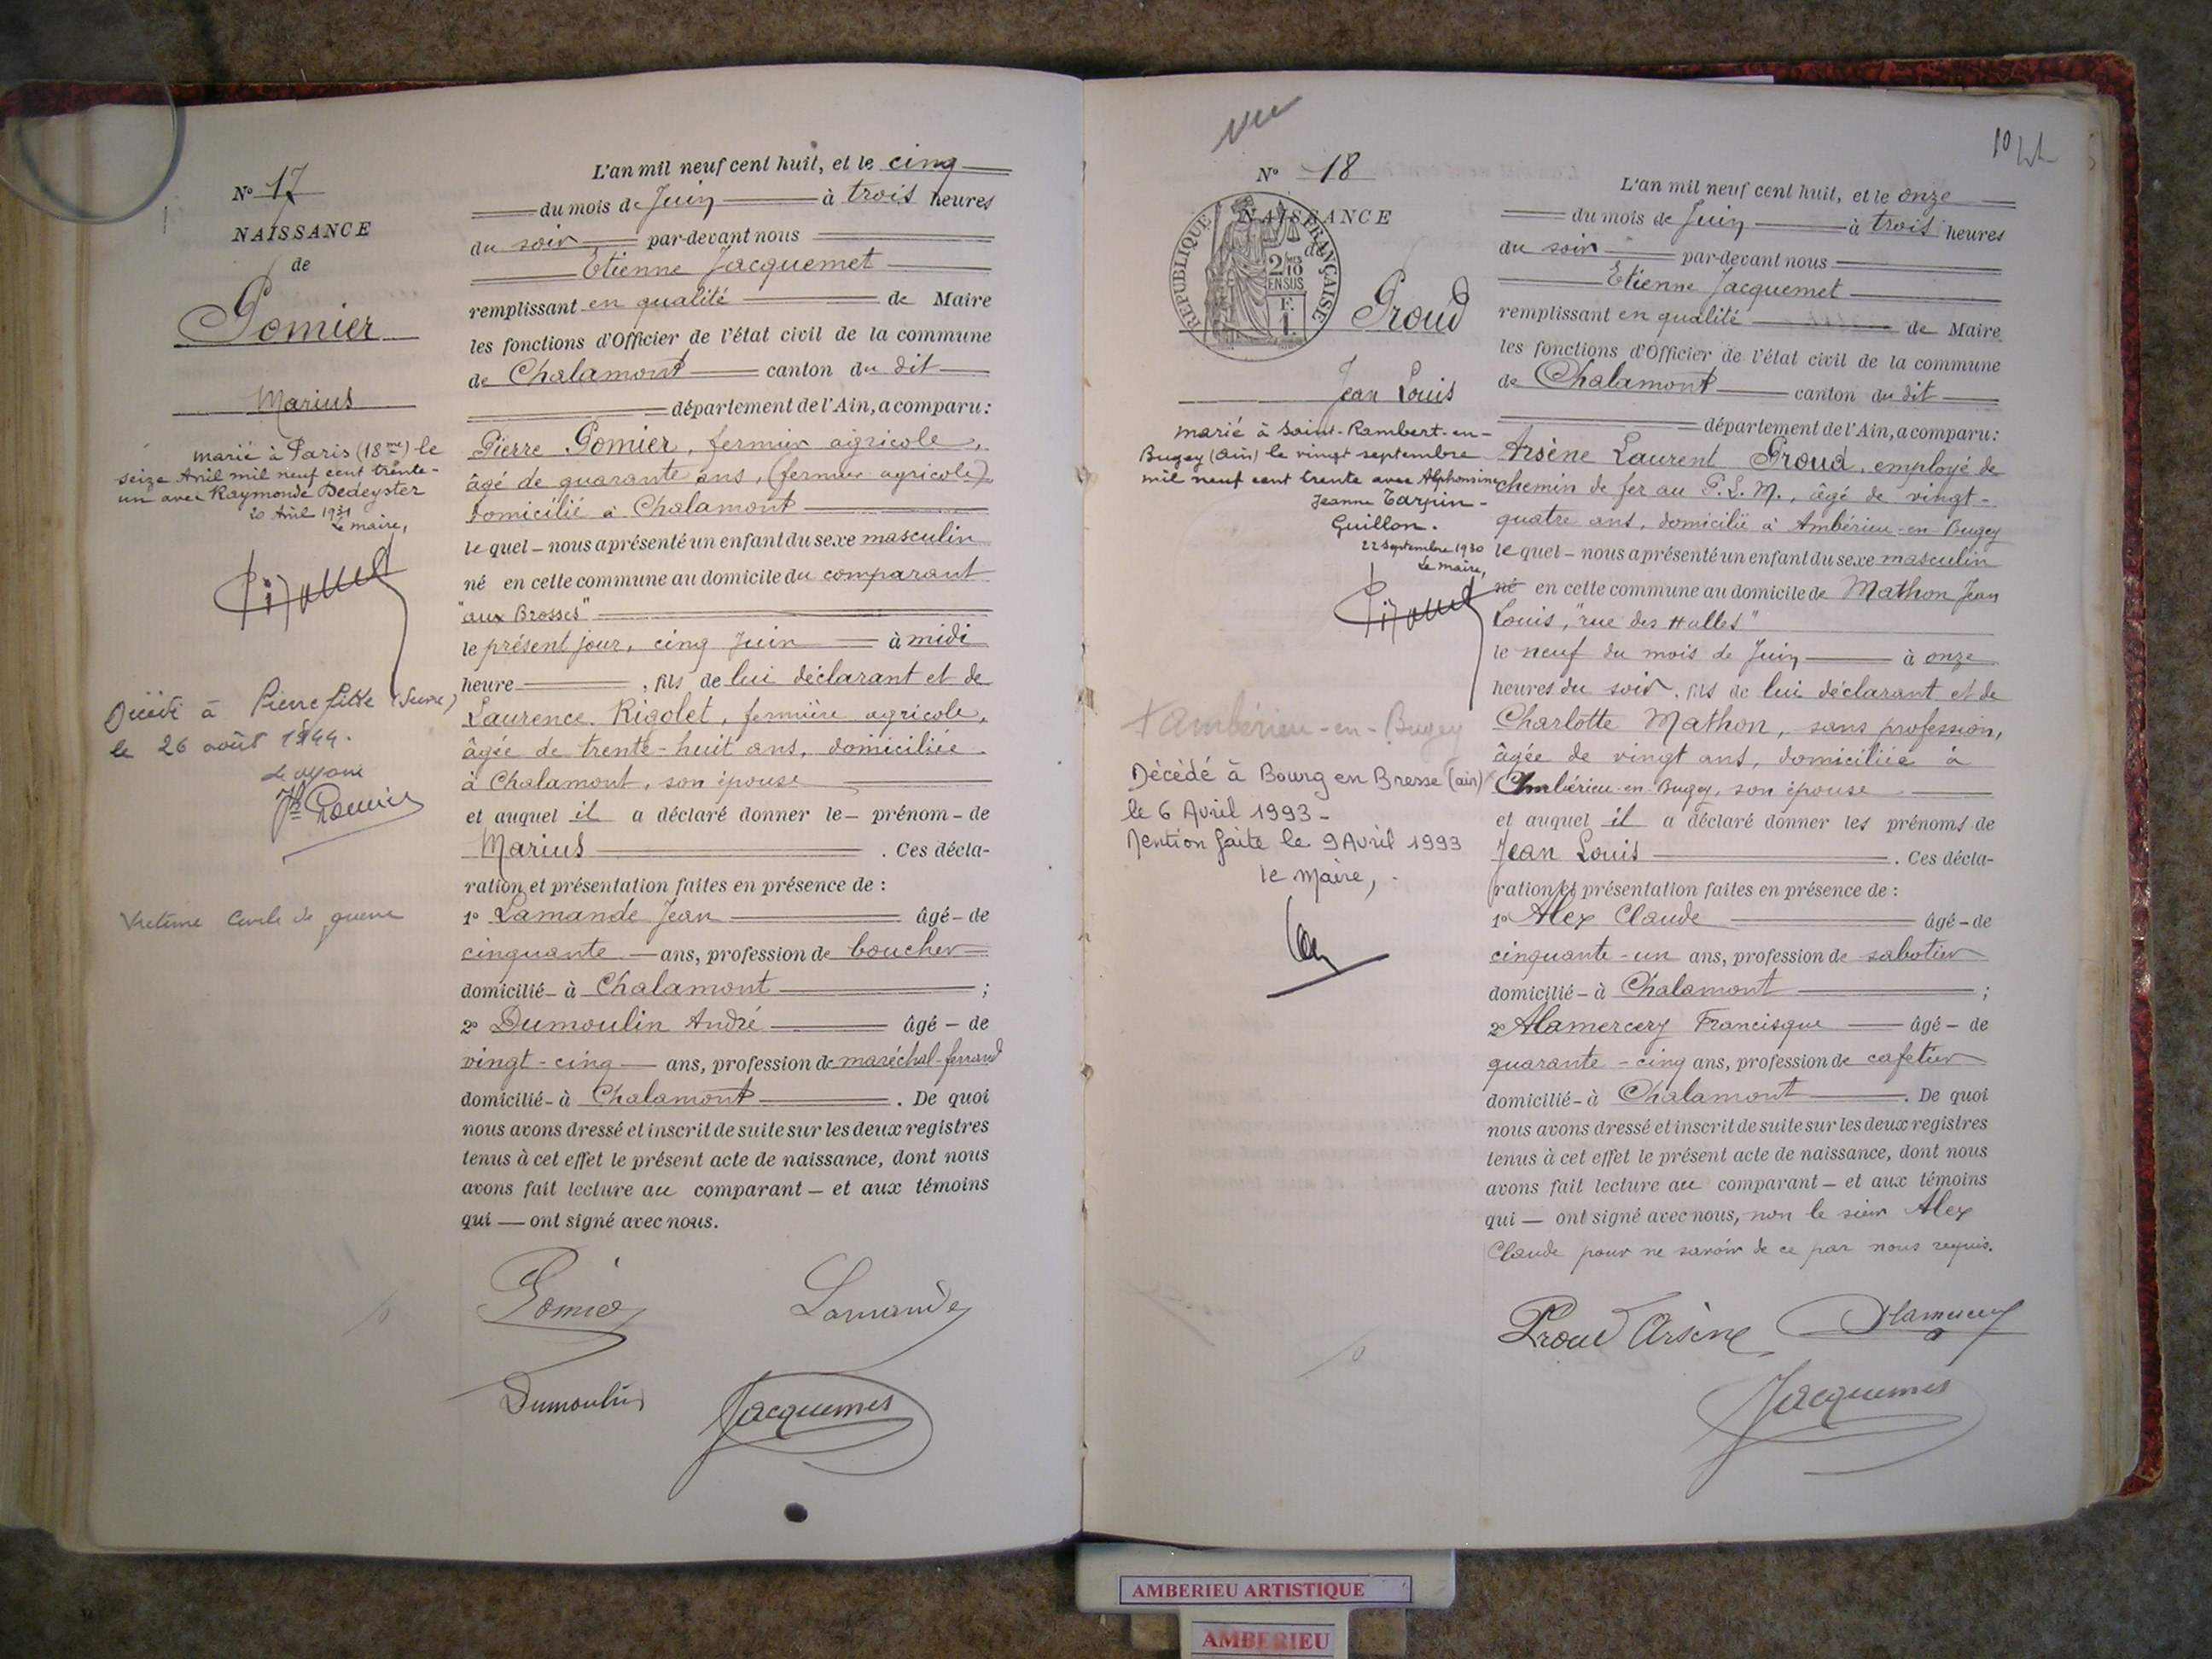 N° 17
NAISSANCE
de
Pomier
Marius
marié à Paris (18me) le
seize Avril mil neuf cent trente-
un avec Raymonde Dedeyster
20 Avril 1931
Le maire,
Décédé à Pierrefitte (Seine)
le 26 août 1944.
Victime Civile de guerre
L'an mil neuf cent huit, et le cinq
du mois de Juin à trois heures
du soir par-devant nous
Etienne Jacquemet
remplissant en qualité de Maire
les fonctions d'Officier de l'état civil de la commune
de Chalamont canton du dit
département de l'Ain, a comparu:
Pierre Pomier, fermier agricole,
âgé de quarante ans, (fermier agricole)
domicilié à Chalamont
lequel – nous a présenté un enfant du sexe masculin
né en cette commune au domicile du comparant
"aux Brosses"
le présent jour, cinq Juin à midi
heure , fils de lui déclarant et de
Laurence Rigolet, fermière agricole,
âgée de trente-huit ans, domiciliée
à Chalamont, son épouse
et auquel il a déclaré donner le – prénom – de
Marius . Ces décla-
ration et présentation faites en présence de :
1° Lamande Jean âgé – de
cinquante ans, profession de boucher
domicilié – à Chalamont ;
2° Dumoulin André âgé – de
vingt-cinq ans, profession de maréchal-ferrand
domicilié – à Chalamont . De quoi
nous avons dressé et inscrit de suite sur les deux registres
tenus à cet effet le présent acte de naissance, dont nous
avons fait lecture au comparant – et aux témoins
qui — ont signé avec nous.
Pomier Lamande
Dumoulin Jacquemet
vu
N° 18
NAISSANCE
de
REPUBLIQUE FRANÇAISE
2/10
EN SUS
F.
1.
Proud
Jean Louis
marié à Saint-Rambert-en-
Bugey (Ain) le vingt septembre
mil neuf cent trente avec Alphonsine
Jeanne Tarpin-
Guillon.
22 Septembre 1930
Le maire,
+ Ambérieu-en-Bugey
Décédé à Bourg en Bresse (ain)
le 6 Avril 1993 -
Mention faite le 9 Avril 1993
le Maire,
10
L'an mil neuf cent huit, et le onze
du mois de Juin à trois heures
du soir par-devant nous
Etienne Jacquemet
remplissant en qualité de Maire
les fonctions d'Officier de l'état civil de la commune
de Chalamont canton du dit
département de l'Ain, a comparu:
Arsène Laurent Proud, employé de
chemin de fer au P.L.M., âgé de vingt-
quatre ans, domicilié à Ambérieu-en-Bugey
lequel – nous a présenté un enfant du sexe masculin
né en cette commune au domicile de Mathon Jean
Louis, "rue des Halles"
le neuf du mois de Juin à onze
heures du soir, fils de lui déclarant et de
Charlotte Mathon, sans profession,
âgée de vingt ans, domiciliée à
Ambérieu-en-Bugey, son épouse
et auquel il a déclaré donner les prénoms de
Jean Louis . Ces décla-
ration et présentation faites en présence de :
1° Alex Claude âgé – de
cinquante-un ans, profession de sabotier
domicilié – à Chalamont ;
2° Alamercery Francisque âgé – de
quarante-cinq ans, profession de cafetier
domicilié – à Chalamont . De quoi
nous avons dressé et inscrit de suite sur les deux registres
tenus à cet effet le présent acte de naissance, dont nous
avons fait lecture au comparant – et aux témoins
qui — ont signé avec nous, non le sieur Alex
Claude pour ne savoir de ce par nous requis.
Proud Arsène Alamercery
Jacquemet
AMBERIEU ARTISTIQUE
AMBERIEU